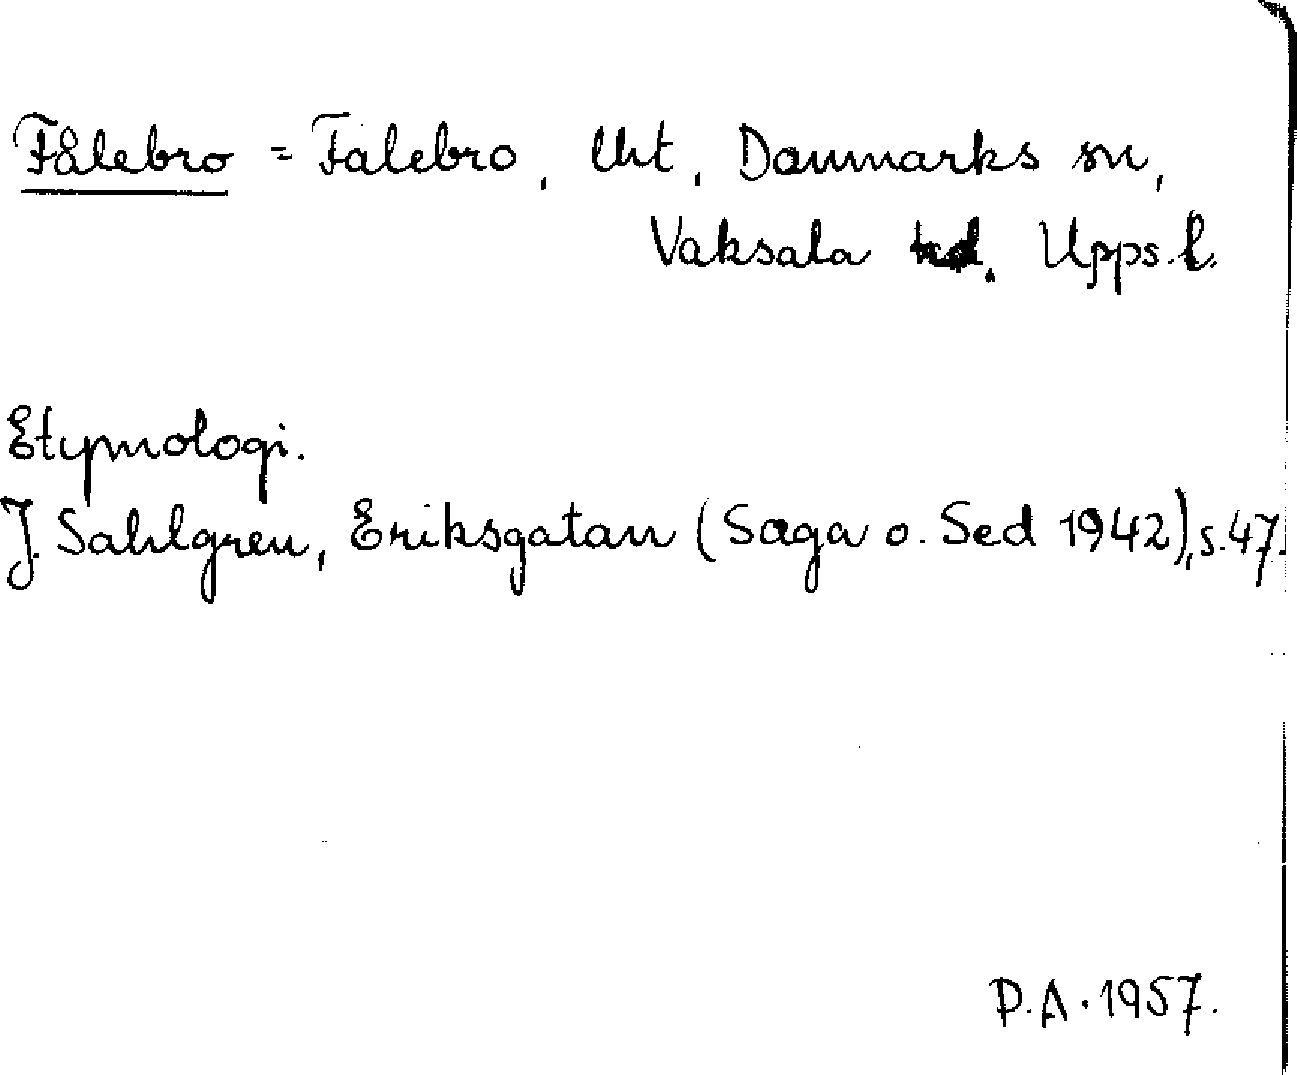 Fålebro = Falebro, lht, Danmarks sn,
Vaksala hd. Upps. l.
Etymologi.
J. Sahlgren, Eriksgatan (Saga o. Sed 1942), s. 47.
P.A. 1957.